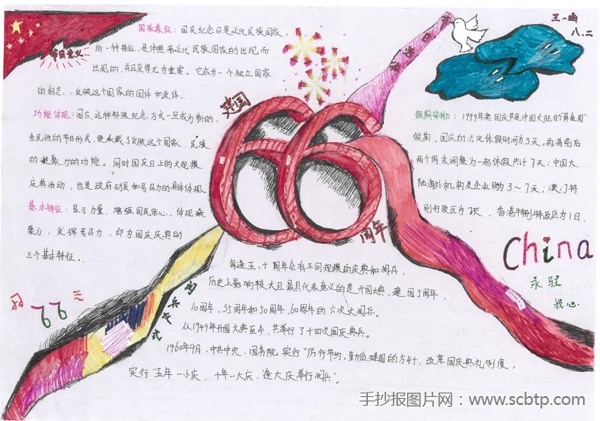 王一
八.二
节日意义
国家象征：国庆纪念日是近代民族国家
的一种特征，是伴随着近代民族国家的出现而
出现的，并且变得尤为重要。它成为一个独立国家
的标志，反映这个国家的国体和政体。
功能体现：国庆这种特殊纪念方式一旦成为新的、
全民性的节日形式，便承载了反映这个国家、民族
的凝聚力的功能。同时国庆日上的大规模
庆典活动，也是政府动员和号召力的具体体现。
基本特征：显示力量、增强国民信心，体现凝
聚力，发挥号召力，即为国庆庆典的
三个基本特征。
建国
66
周年
假期安排：1999年起国庆节是中国大陆的黄金周
假期。国庆的法定休假时间为3天，再将前后
两个周末调整为一起休假共计7天；中国大
陆海外机构及企业则为3~7天；澳门特
别行政区为2天，香港特别行政区为1日。
China
永驻
我心
逢五、十周年会有不同规模的庆典和阅兵。
历史上影响较大且最具代表意义的是开国大典，建国5周年、
10周年、35周年和50周年、60周年的六次大阅兵。
从1949年开国大典至今，共举行了十四次国庆阅兵。
1960年9月，中共中央、国务院实行"厉行节约，勤俭建国的方针，改革国庆典礼制度，
实行"五年一小庆，十年一大庆，逢大庆举行阅兵"。
手抄报图片网：www.scbtp.com